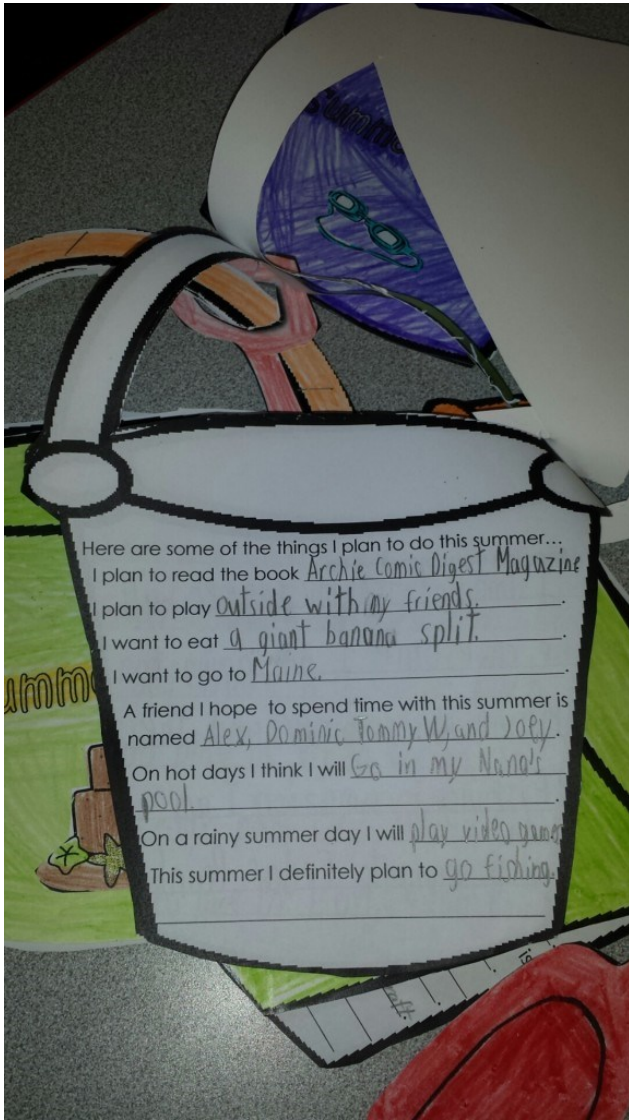 Summe
Here are some of the things I plan to do this summer...
I plan to read the book Archie Comic Digest Magazine
I plan to play outside with my friends.
I want to eat a giant banana split.
I want to go to Maine.
A friend I hope to spend time with this summer is
named Alex, Dominic Tommy W, and Joey.
On hot days I think I will Go in my Nana's
pool.
On a rainy summer day I will play video games
This summer I definitely plan to go fishing.
umm